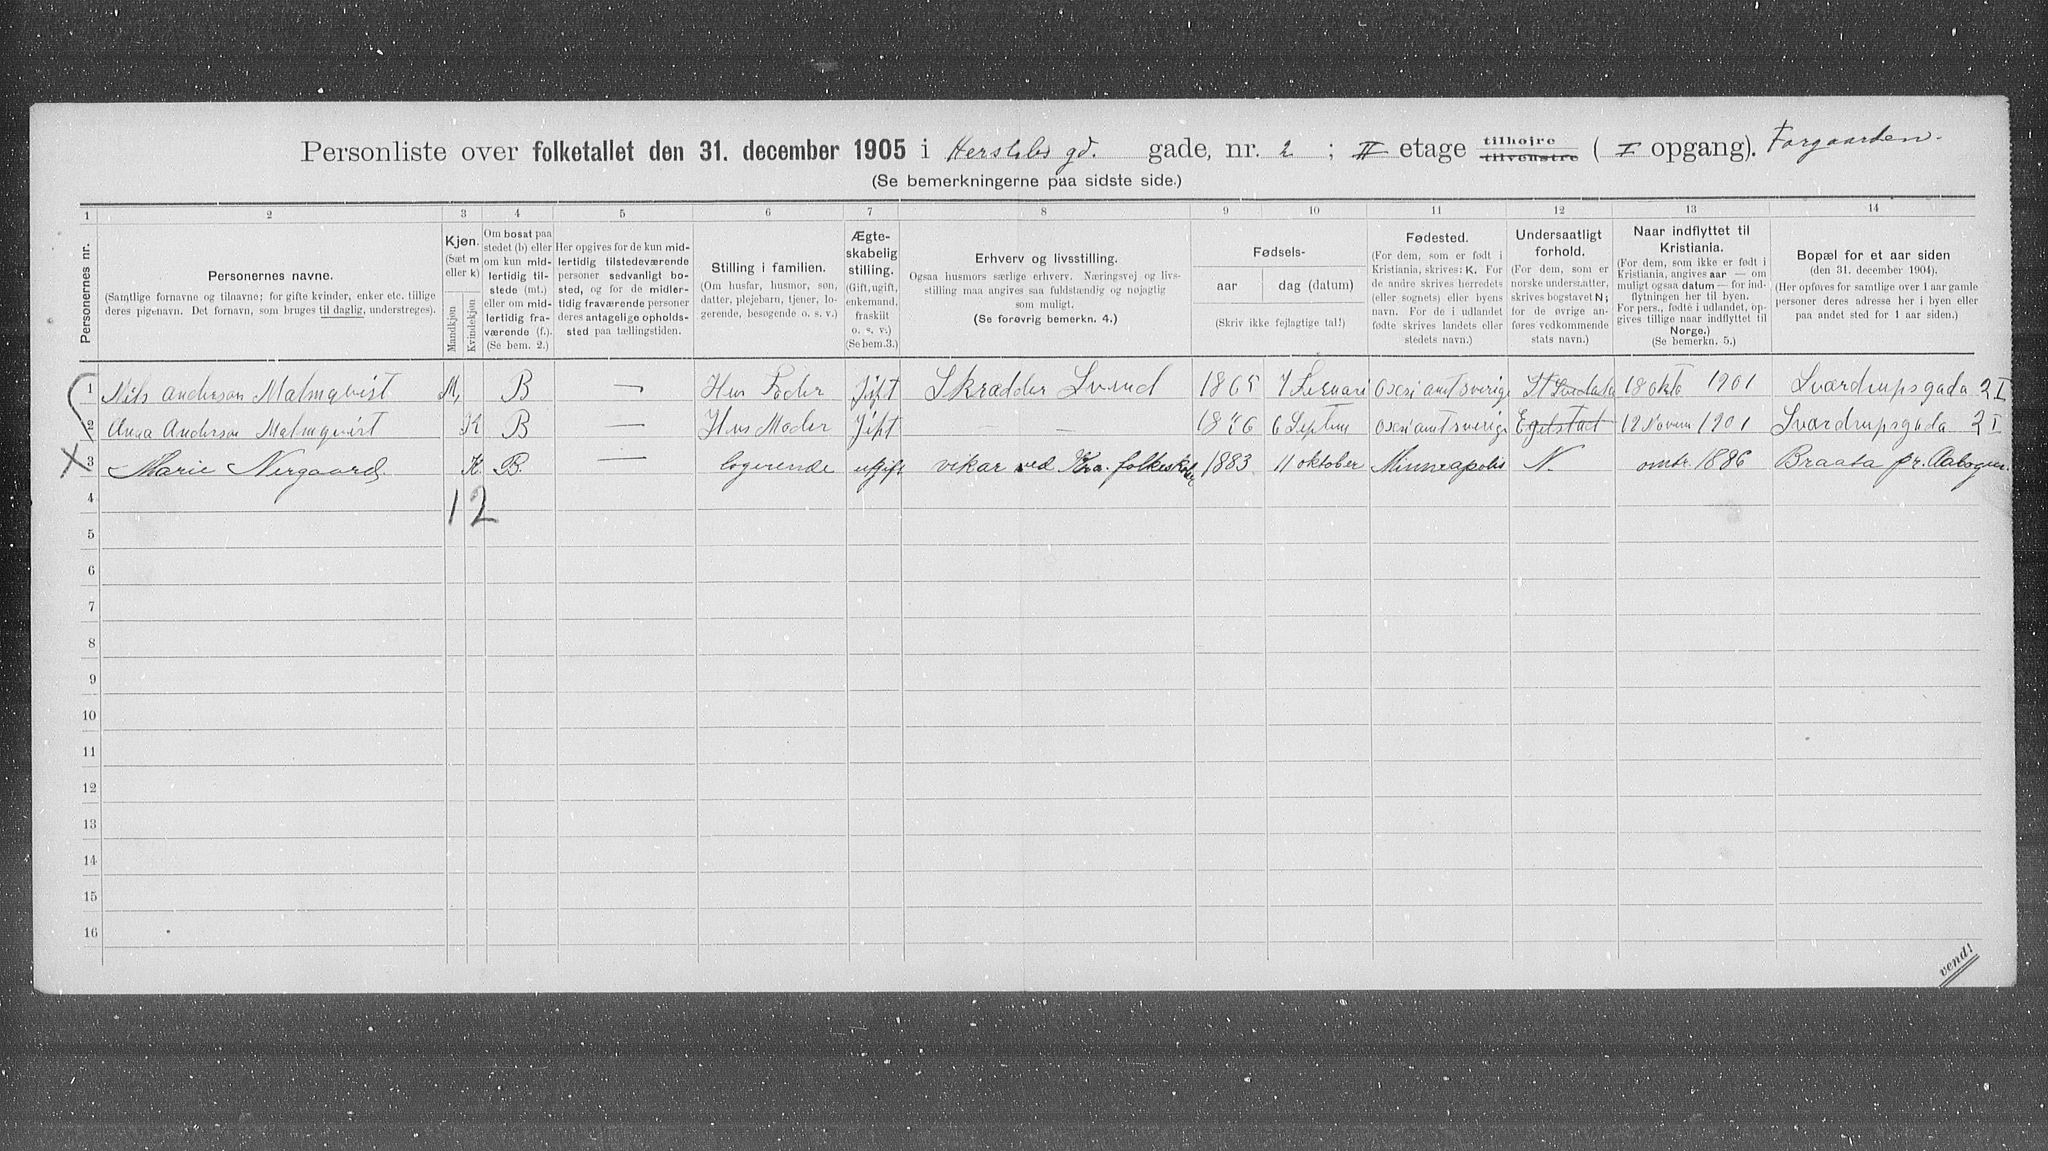 Personliste over folketallet den 31. december 1905 i Herslebs gd. gade, nr. 2 ; II etage tilhøjre tilvenstre ( I opgang). Forgaarden.
(Se bemerkningerne paa sidste side.)
1 2 3 4 5 6 7 8 9 10 11 12 13 14
Personernes nr.
Personernes navne.
(Samtlige fornavne og tilnavne; for gifte kvinder, enker etc. tillige
deres pigenavn. Det fornavn, som bruges til daglig, understreges).
Kjøn.
(Sæt m
eller k)
Mandkjøn
Kvindekjøn
Om bosat paa
stedet (b) eller
om kun mid-
lertidig til-
stede (mt.)
eller om mid-
lertidig fra-
værende (f.).
(Se bem. 2.)
Her opgives for de kun mid-
lertidig tilstedeværende
personer sedvanligt bo-
sted, og for de midler-
tidig fraværende personer
deres antagelige opholds-
sted paa tællingstiden.
Stilling i familien.
(Om husfar, husmor, søn,
datter, plejebarn, tjener, lo-
gerende, besøgende o. s. v.)
Ægte-
skabelig
stilling.
(Gift, ugift,
enkemand,
fraskilt
o. s. v.)
(Se bem.3.)
Erhverv og livsstilling.
Ogsaa husmors særlige erhverv. Næringsvej og livs-
stilling maa angives saa fuldstændig og nøjagtig
som muligt.
(Se forøvrig bemerkn. 4.)
Fødsels-
aar dag (datum)
(Skriv ikke fejlagtige tal!)
Fødested.
(For dem, som er født i
Kristiania, skrives: K. For
de andre skrives herredets
(eller sognets) eller byens
navn. For de i udlandet
fødte skrives landets eller
stedets navn.)
Undersaatligt
forhold.
(For dem, som er
norske undersaatter,
skrives bogstavet N;
for de øvrige an-
føres vedkommende
stats navn.)
Naar indflyttet til
Kristiania.
(For dem, som ikke er født i
Kristiania, angives aar — om
muligt ogsaa datum — for ind-
flytningen her til byen.
For pers., fødte i udlandet, op-
gives tillige naar indflyttet til
Norge.)
(Se bemerkn. 5.)
Bopæl for et aar siden
(den 31. december 1904).
(Her opføres for samtlige over 1 aar gamle
personer deres adresse her i byen eller
paa andet sted for 1 aar siden.)
1 Nils Anderson Malmqvist M, B — Hus Foder Jift Skrædder Svend 1865 Osesiamtsverige 18 okto 1901 Sværdrupsgada 2 I
2 Anna Anderson Malmqvist K B — Hus Moder Jift — — 6 Septem Osesiamtsverige 12 Novem 1901 Sværdrupsgada 2 I
3 Marie Nergaard K. B. — logerende ugift vikar ved Kra. folkeskole 1883 11 oktober Minneapolis N. omtr. 1886 Braata pr. Aabogen.
4
12
5
6
7
8
9
10
11
12
13
14
15
16
vend!